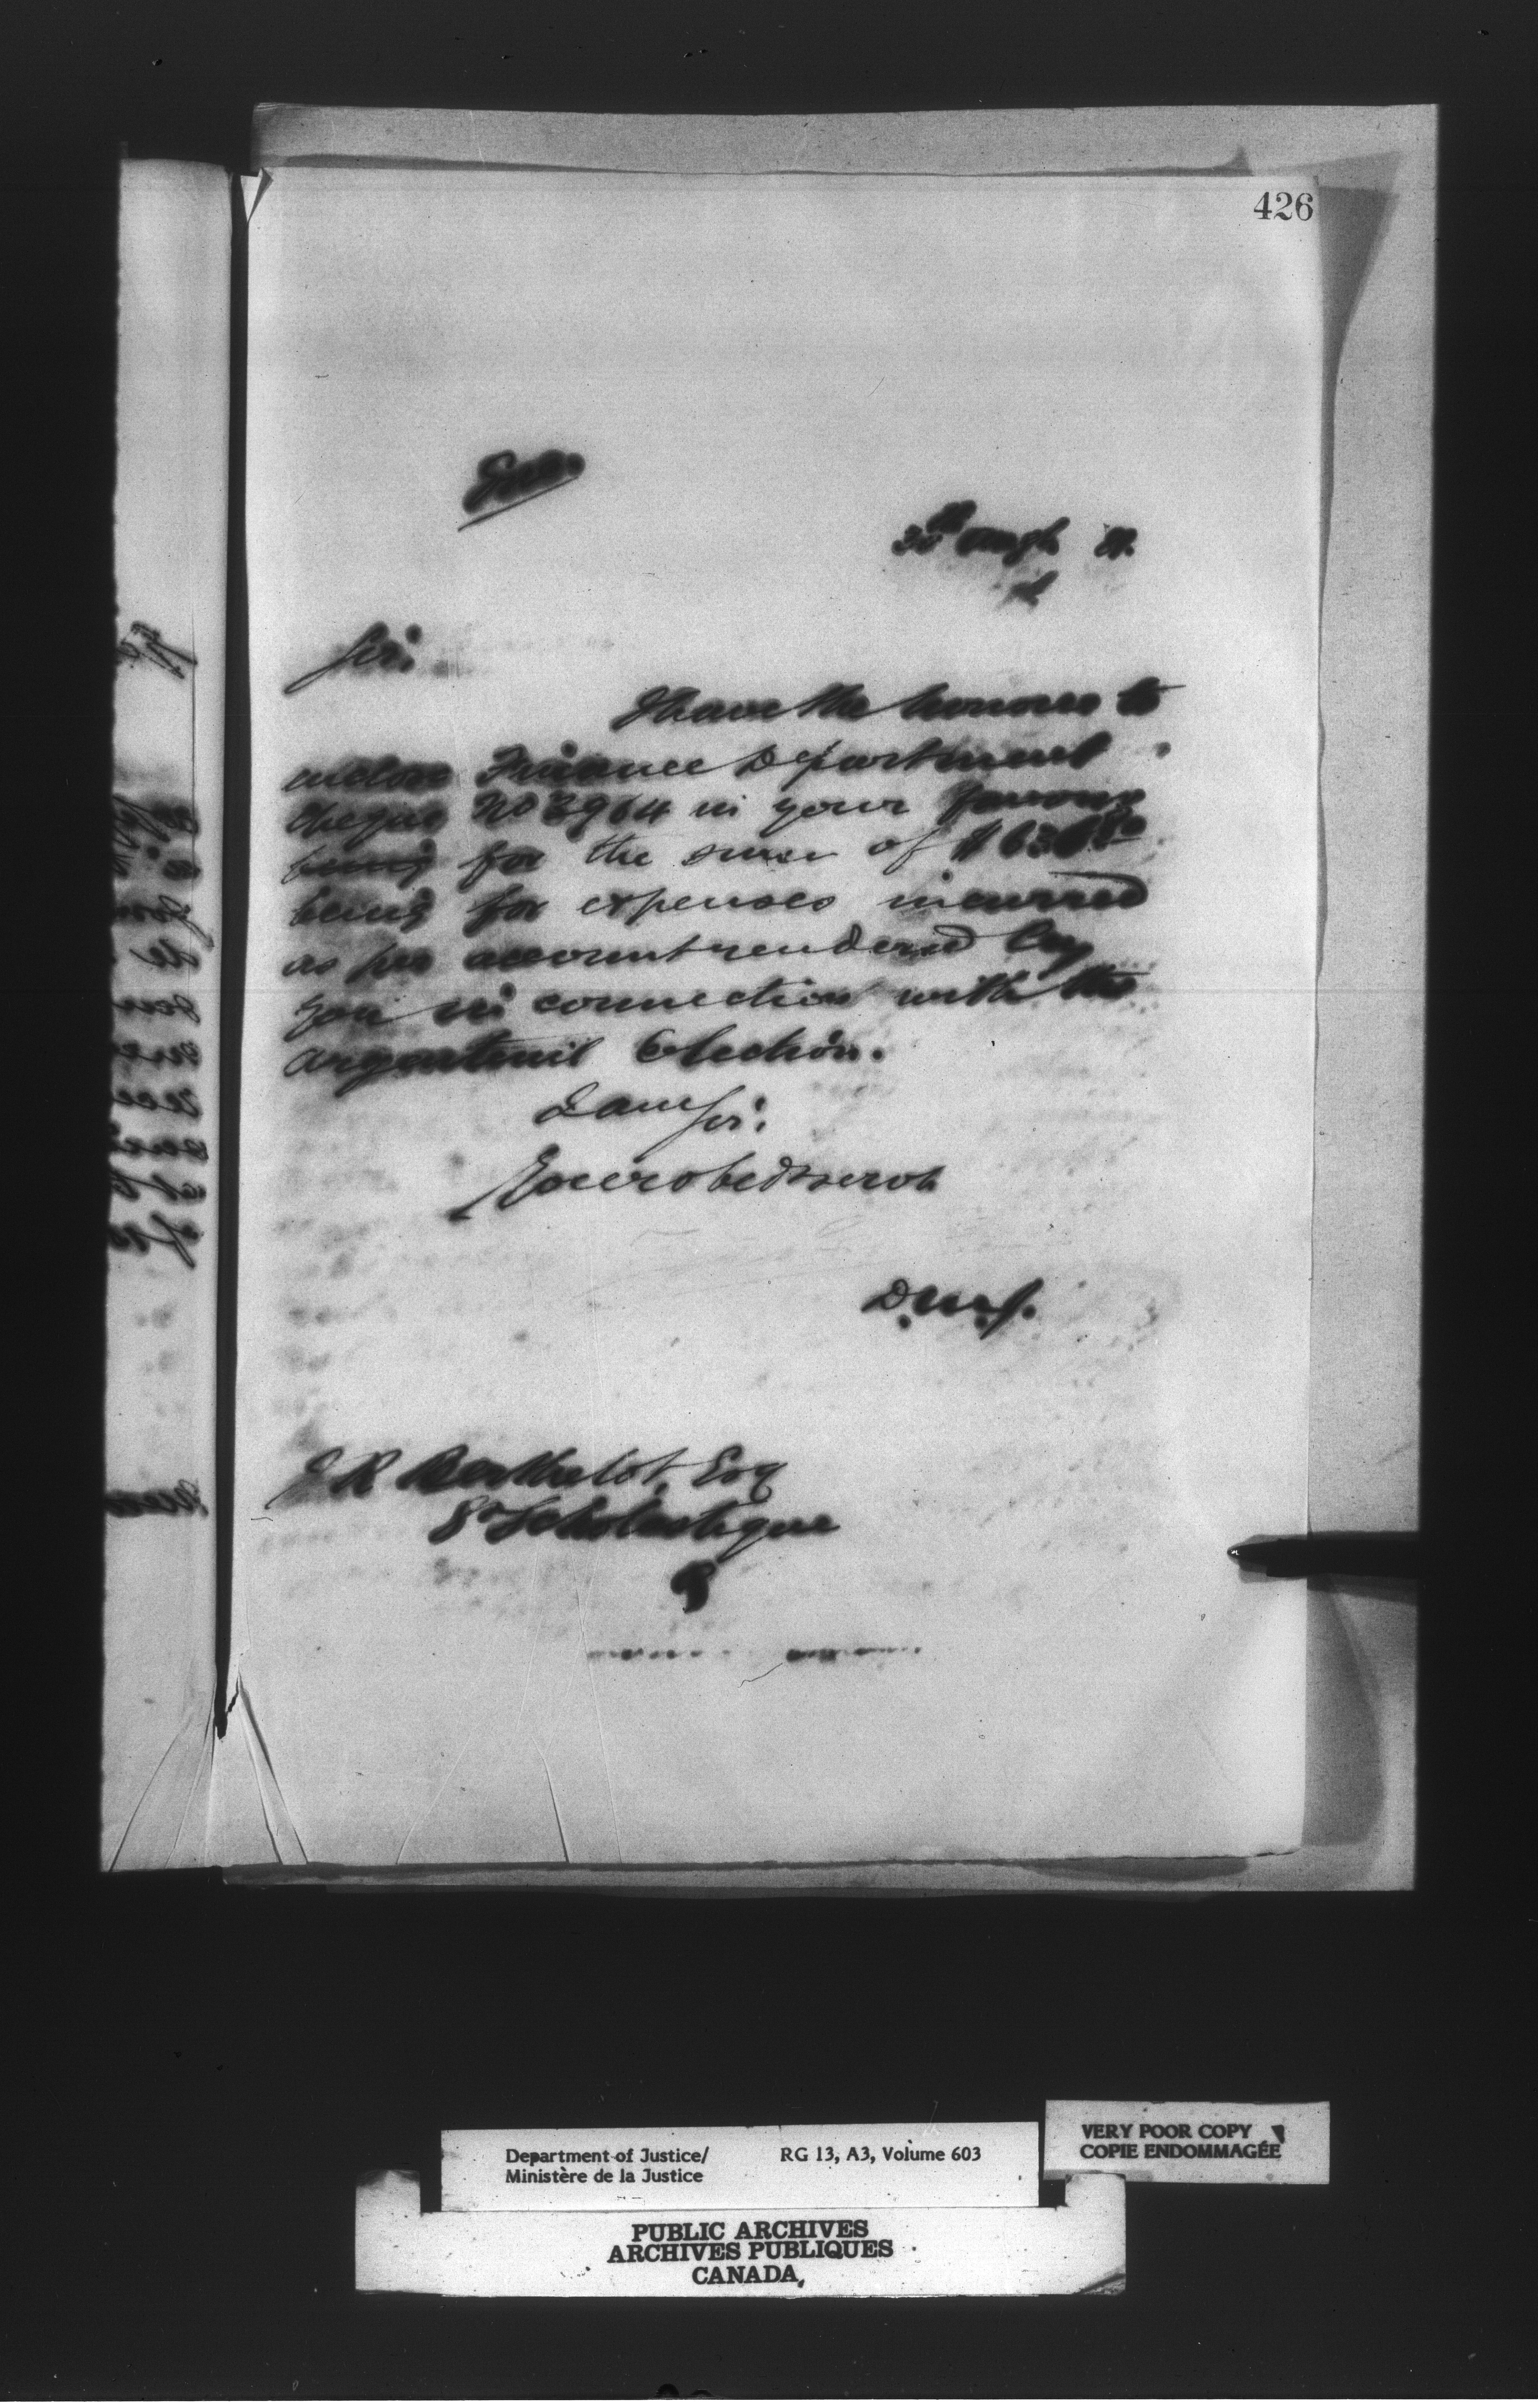 426
30th Augt
Sir:
I have the honour to
enclose Finance Department
cheque No 3964 in your favour
being for the sum of
being for expenses incurred
as per account rendered by
you in connection with the
Argenteuil Election.
I am Sir:
Your obed servt
D.M.J.
J R Berthelot, Esq
St Scholastique
Department of Justice/
Ministère de la Justice
RG 13, A3, Volume 603
VERY POOR COPY
COPIE ENDOMMAGÉE
PUBLIC ARCHIVES
ARCHIVES PUBLIQUES
CANADA